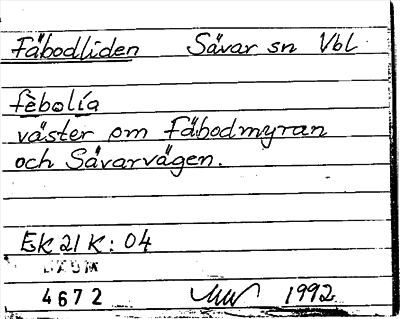 Fäbodliden Sävar sn Vbl
fèbolía
väster om Fäbodmyran
och Sävarvägen.
EK 21 K: 04
DAUM
4672 1992